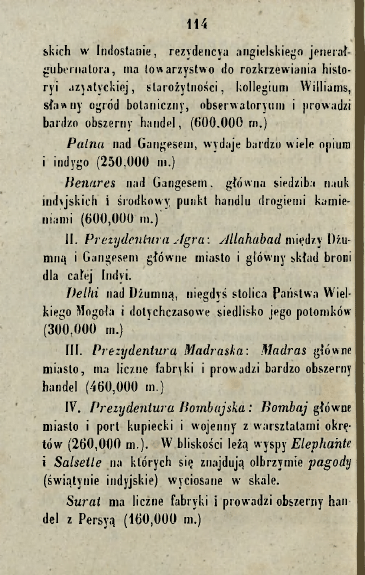 114
skich w Indostanie, rezydencya angielskiego jenerał-
gubernatora, ma towarzystwo do rozkrzewiania histo-
ryi azyatyckiej, starożytności, kollegium Williams,
sławny ogród botaniczny, obserwatoryum i prowadzi
bardzo obszerny handel, (600.000 m.)
Patna nad Gangesem, wydaje bardzo wiele opium
i indygo (250,000 m.)
Benares nad Gangesem, główna siedziba nauk
indyjskich i środkowy punkt handlu drogiemi kamie-
niami (600,000 m.)
II. Prezydentura Agra: Allahabad między Dżu-
mną i Gangesem główne miasto i główny skład broni
dla całej Indyi.
Delhi nad Dżumną, niegdyś stolica Państwa Wiel-
kiego Mogoła i dotychczasowe siedlisko jego potomków
(300,000 m.)
III. Prezydentura Madraska: Madras główne
miasto, ma liczne fabryki i prowadzi bardzo obszerny
handel (460,000 m.)
IV. Prezydentura Bombajska: Bombaj główne
miasto i port kupiecki i wojenny z warsztatami okrę-
tów (260,000 m.). W bliskości leżą wyspy Elephante
i Salsette na których się znajdują olbrzymie pagody
(świątynie indyjskie) wyciosane w skale.
Surat ma liczne fabryki i prowadzi obszerny han-
del z Persyą (160,000 m.)